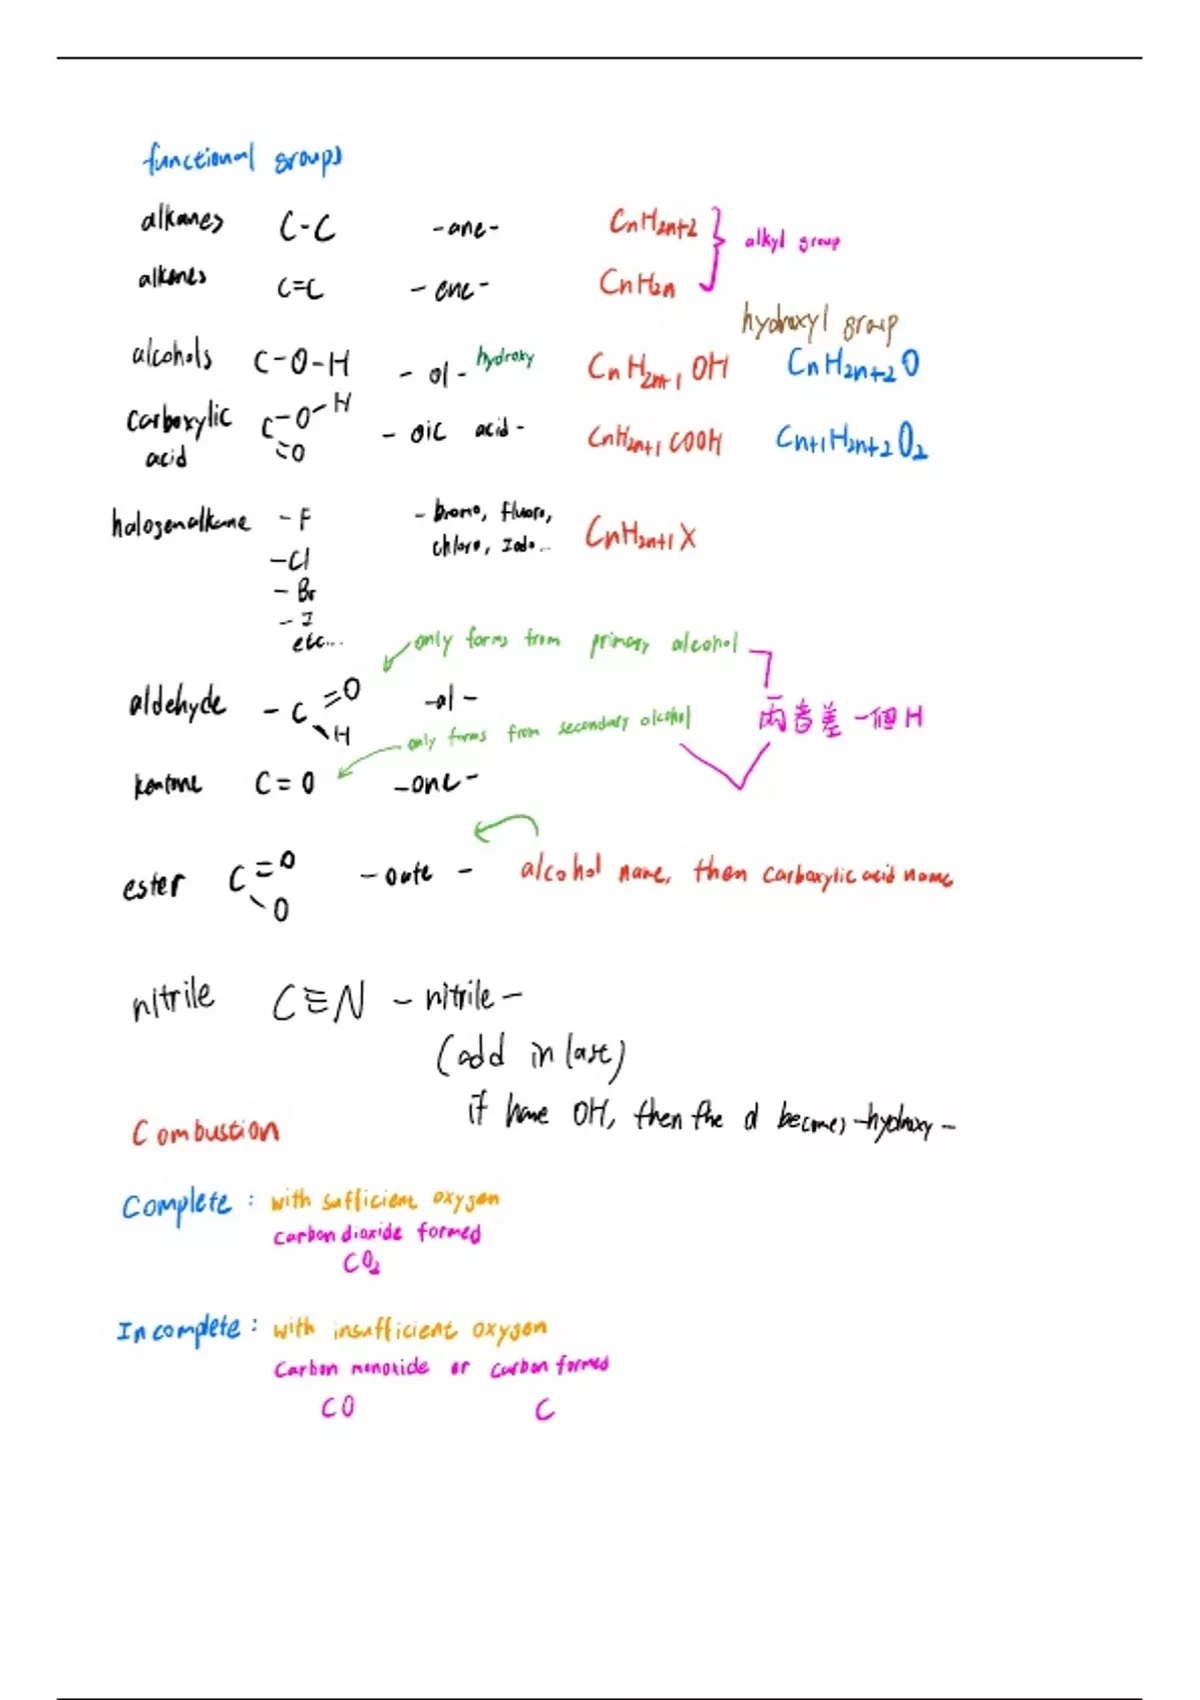 functional groups
alkanes C-C -ane- CnH2n+2 alkyl group
alkenes C=C -ene- CnH2n
hydroxyl group
alcohols C-O-H -ol- hydroxy CnH2n+1 OH CnH2n+2O
carboxylic acid C-O-H =O -oic acid- CnH2n+1 COOH Cn+1H2n+2O2
halogenalkane -F -bromo, fluoro, CnH2n+1 X
-Cl chloro, Iodo...
-Br
-I
etc...
only forms from primary alcohol
aldehyde -C=O -al-
H
兩者差一個H
only forms from secondary alcohol
kentone C=O -one-
ester C=O -oate- alcohol name, then carboxylic acid name
O
nitrile C≡N -nitrile-
(add in last)
if have OH, then the ol becomes -hydroxy-
Combustion
Complete: with sufficient oxygen
carbon dioxide formed
CO2
Incomplete: with insufficient oxygen
Carbon monoxide or carbon formed
CO C